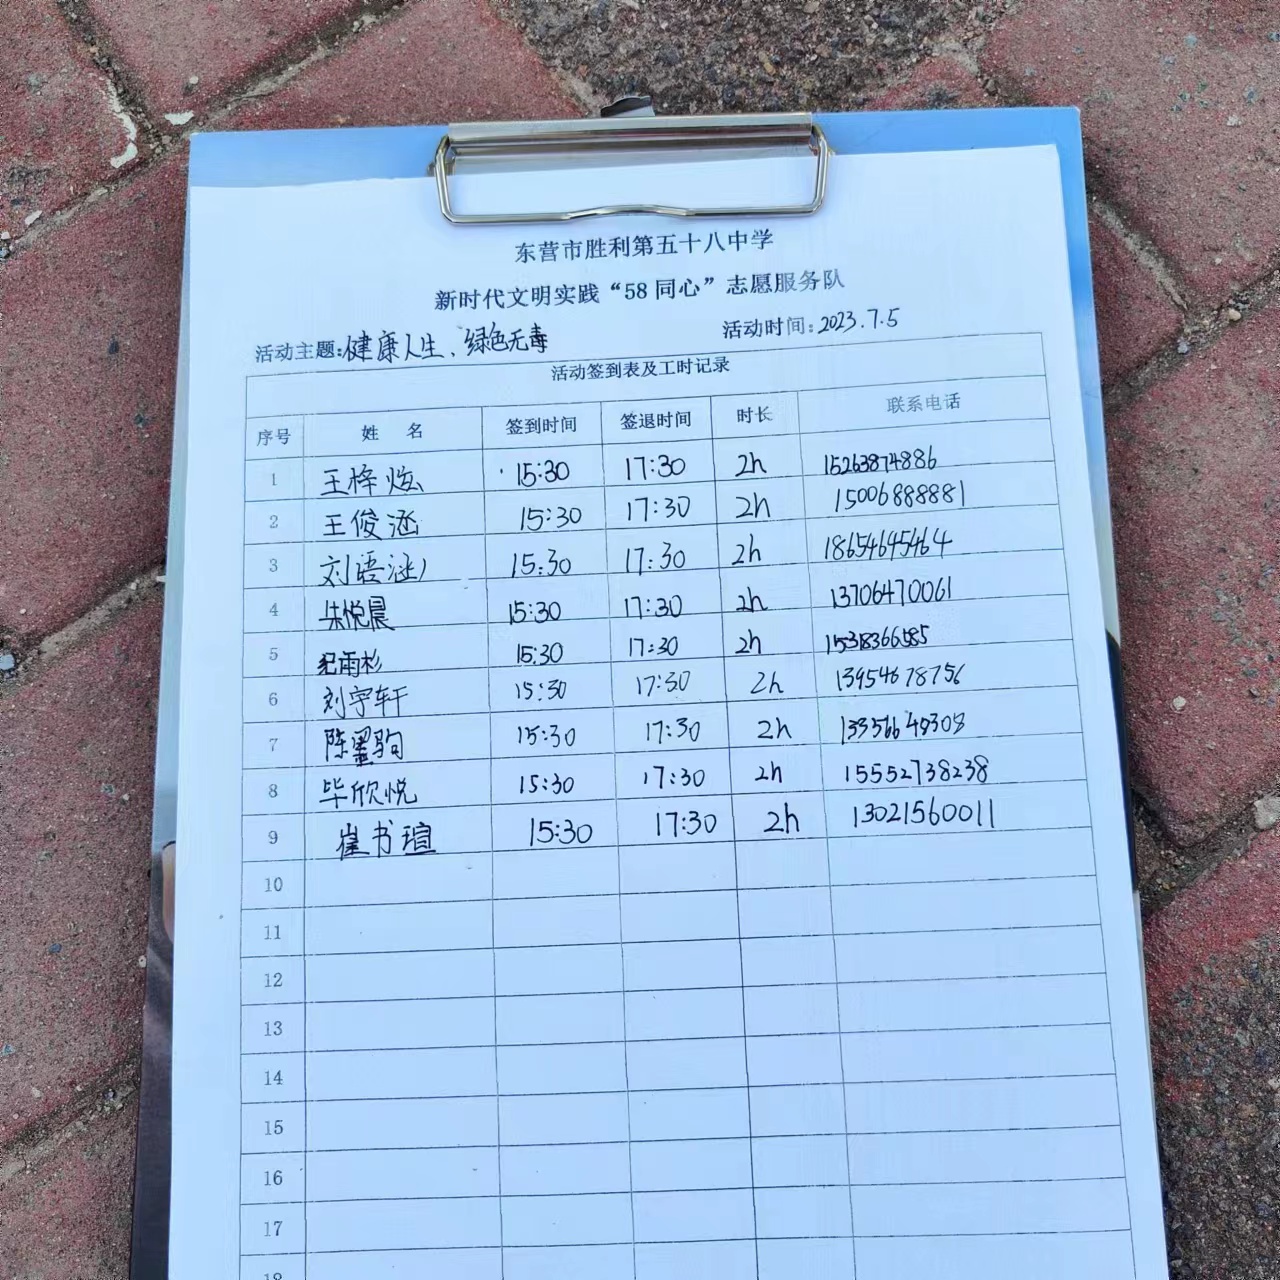 东营市胜利第五十八中学
新时代文明实践“58同心”志愿服务队
活动主题:健康人生、绿色无毒 活动时间:2023.7.5
活动签到表及工时记录
序号 姓 名 签到时间 签退时间 时长 联系电话
1 王梓炫 15:30 17:30 2h 15263874886
2 王俊涵 15:30 17:30 2h 15006888881
3 刘语涵 15:30 17:30 2h 18654645464
4 朱悦晨 15:30 17:30 2h 13706470061
5 纪雨杉 15:30 17:30 2h 15318366585
6 刘宇轩 15:30 17:30 2h 13954678756
7 陈墨驹 15:30 17:30 2h
8 毕欣悦 15:30 17:30 2h 15552738238
9 崔书瑄 15:30 17:30 2h 13021560011
10
11
12
13
14
15
16
17
18